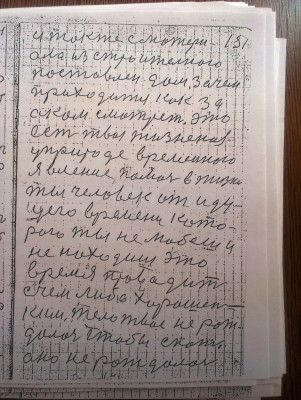 и так те смотерм- 151.
ала из строителного
поставлен дом. Зачем
приходится как за
оком смотрет. Это
ест твоя жизненая
у природе временного
явление, помощ в жизни
ты человек от иду-
щего времени кото-
рого ты не любеш и
не находиш это
время проводит
с чем либо хорошен-
ким, тело твое не рож-
далося чтобы скот,
оно не рождалос